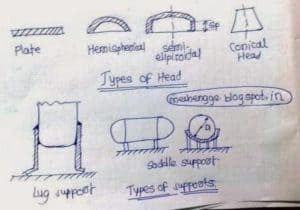 Plate
Hemispherical
semi-
ellipsoidal
SF
Conical
Head
Types of Head
meshengge.blogspot.in
a
Lug support
Saddle support
Types of supports.